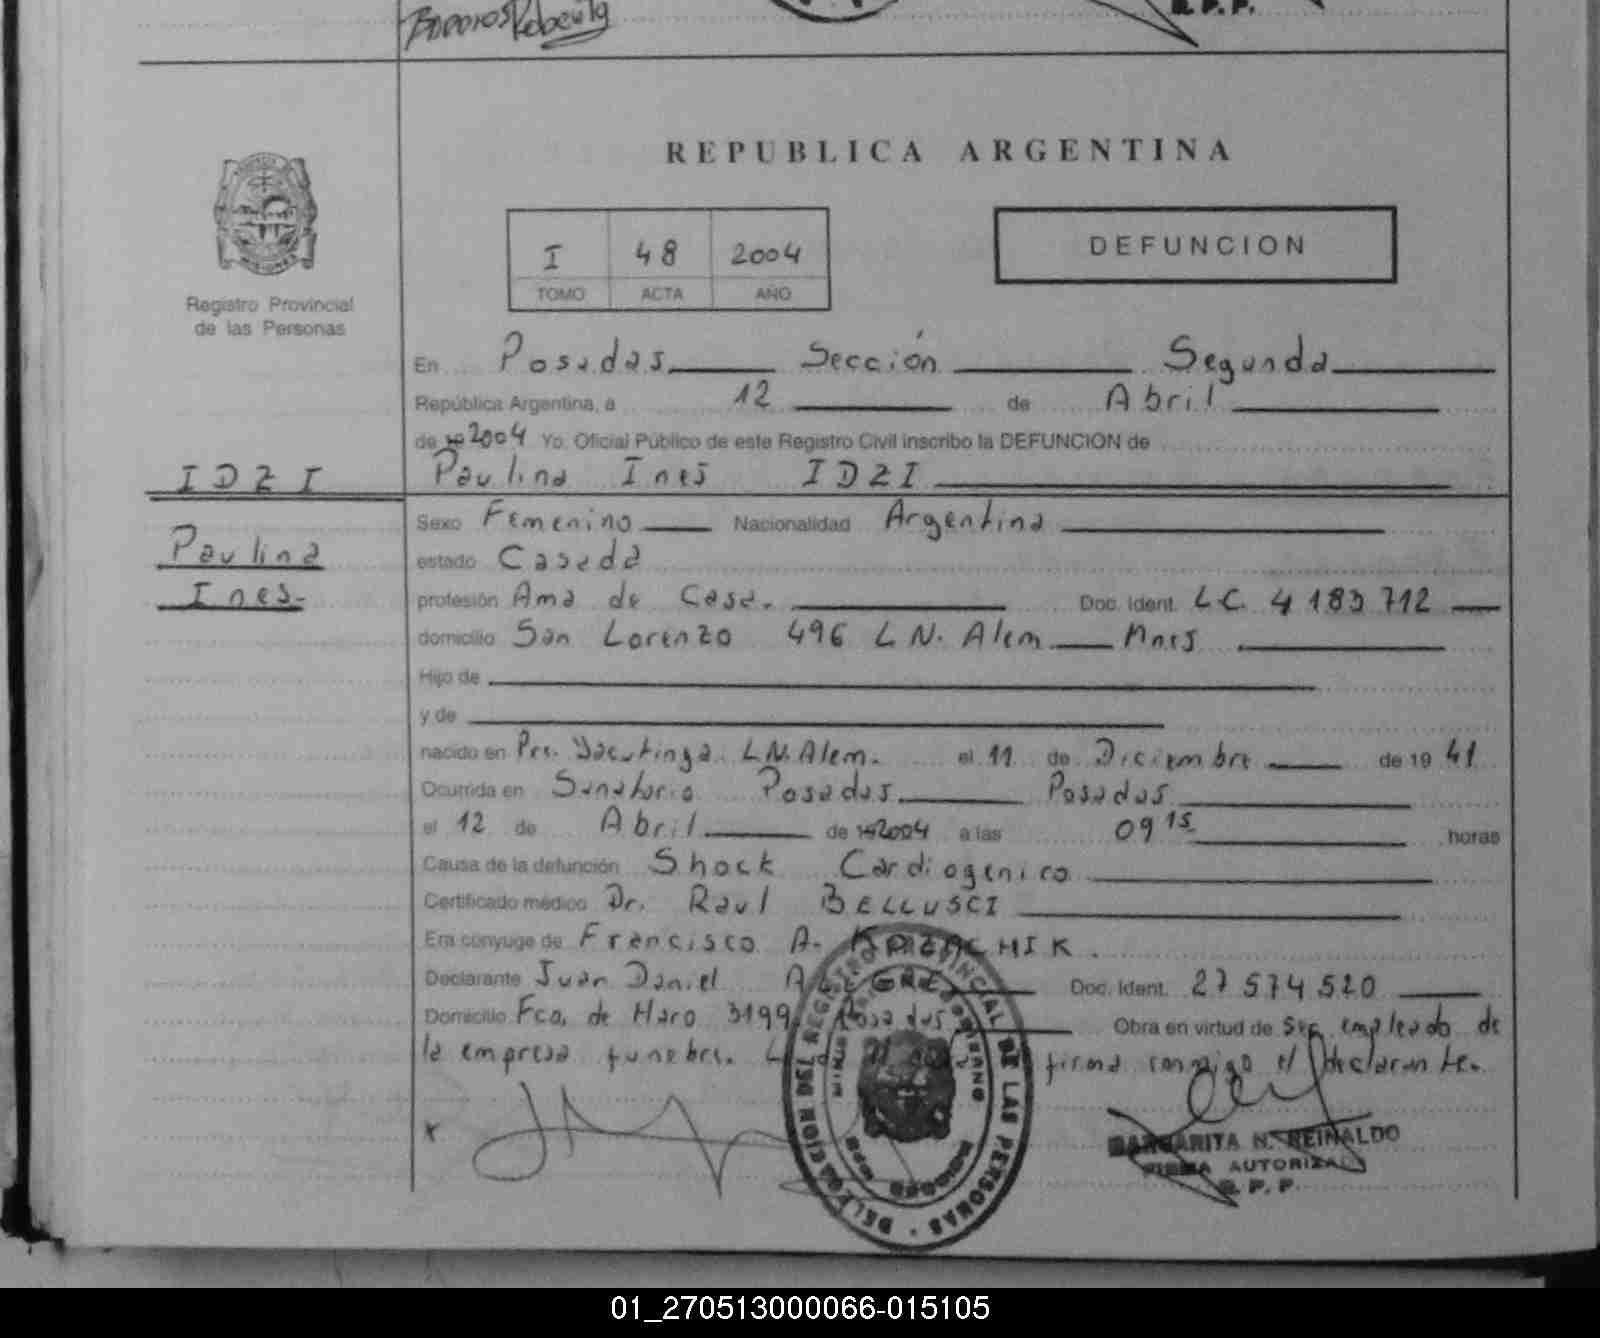 REPUBLICA ARGENTINA
MISIONES
Registro Provincial
de las Personas
I 48 2004
TOMO ACTA AÑO
DEFUNCION
En Posadas Sección Segunda
República Argentina, a 12 de Abril
de 2004 Yo, Oficial Público de este Registro Civil inscribo la DEFUNCION de
IDZI
Paulina
Ines
Paulina Ines IDZI
Sexo Femenino Nacionalidad Argentina
estado Casada
profesión Ama de Casa. Doc. Ident. LC. 4 183 712
domicilio San Lorenzo 496 L N. Alem Mnes
Hijo de
y de
nacido en Pre. Yacutinga L.N. Alem. el 11 de Diciembre de 19 41
Ocurrida en Sanatorio Posadas Posadas
el 12 de Abril de 2004 a las 09 15 horas
Causa de la defunción Shock Cardiogenico
Certificado médico Dr. Raul BELLUSCI
Era cónyuge de Francisco A.
Declarante Juan Daniel ALEGRE Doc. Ident. 27 574 520
Domicilio Fco. de Haro 3199 Posadas Obra en virtud de ser empleado de
la empresa funebre. firma conmigo el declarante.
DELEGACION DEL REGISTRO PROVINCIAL DE LAS PERSONAS
MARGARITA N. REINALDO
FIRMA AUTORIZADA
R. P. P.
01_270513000066-015105